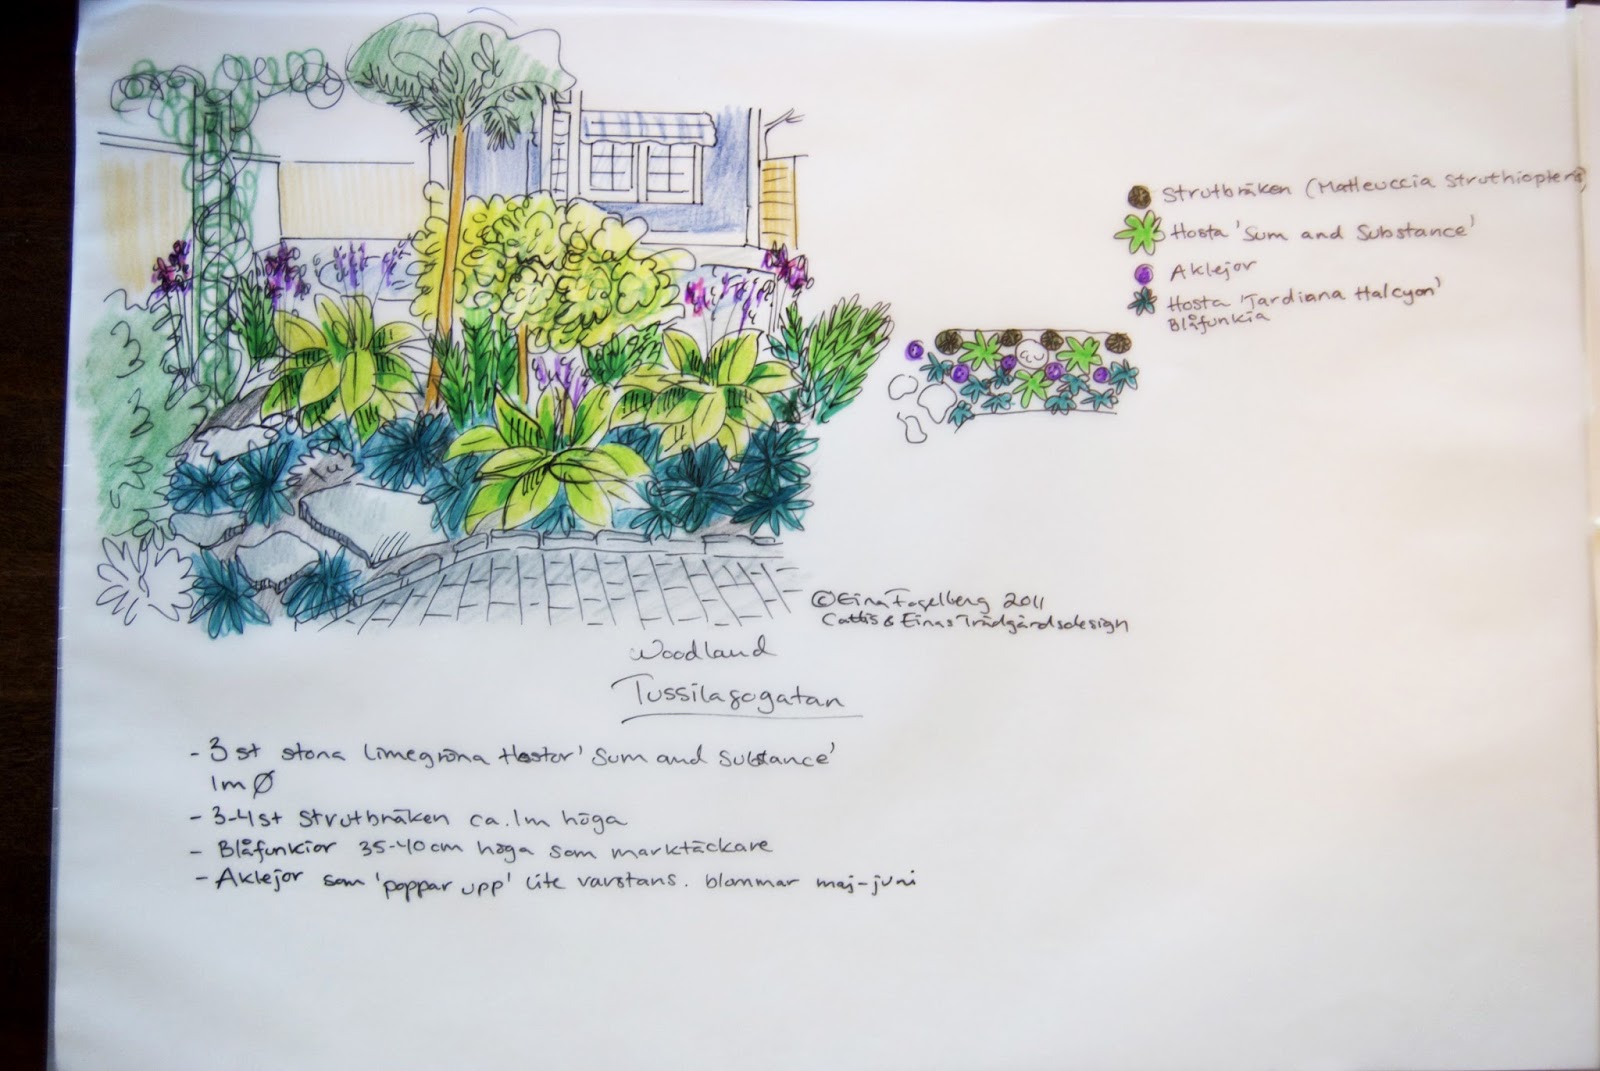 Strutbräken (Matteuccia Struthiopteris)
Hosta 'Sum and Substance'
Aklejor
Hosta 'Tardiana Halcyon'
Blåfunkia
© Eina Fogelberg 2011
Cattis & Einas Trädgårdsdesign
Woodland
Tussilagogatan
- 3 st stora limegröna Hostor 'Sum and Substance'
1m Ø
- 3-4 st Strutbräken ca. 1m höga
- Blåfunkior 35-40 cm höga som marktäckare
- Aklejor som 'poppar upp' lite varstans. blommar maj-juni